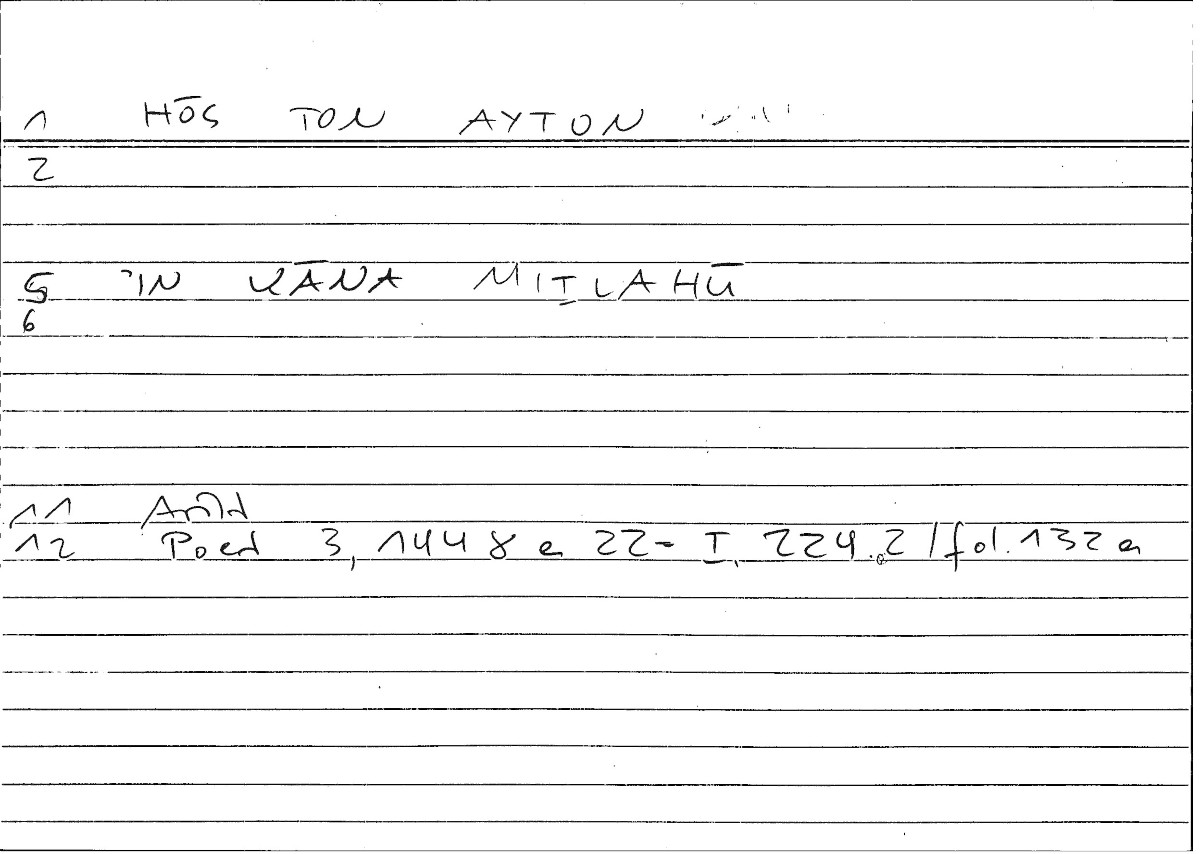 1 HŌS TON AYTON
2
5 'IN KĀNA MIṮLAHŪ
6
11 Arist
12 Poet 3, 1448 a 22 - I, 224.2 / fol. 132 a